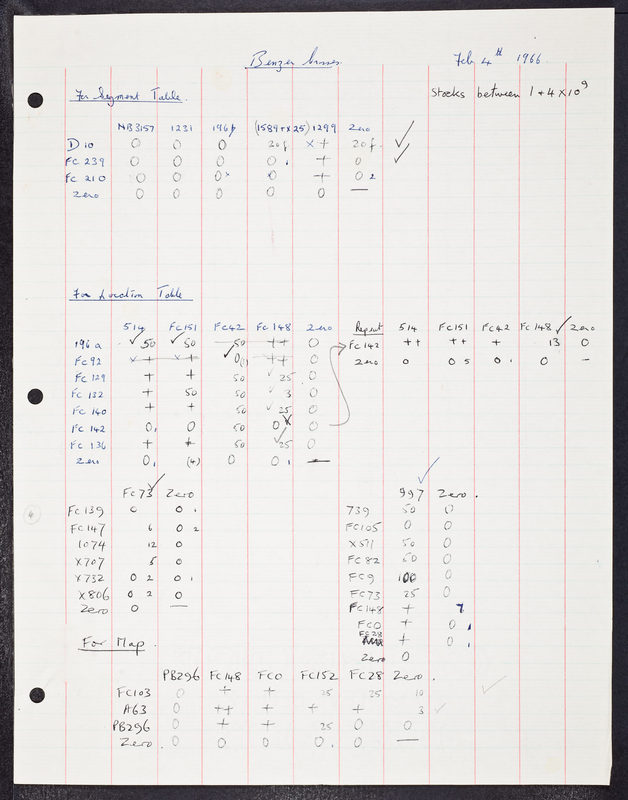 Benzer crosses
Feb 4th 1966.
Stocks between 1 + 4 x 10^9
For Segment Table.
NB3157 1231 196p (1589+X25) 1299 Zero
D10 0 0 0 20f X+ 20f. ✓
FC239 0 0 0 0 . + 0 ✓
FC210 0 0 0x 0 + 0 2
Zero 0 0 0 0 0 —
For Location Table
514 FC151 FC42 FC148 Zero
196a ✓50 ✓50 50 ++ 0
FC92 x + x + ✓0(1) ++ 0
FC129 + + 50 ✓25 0
FC132 + 50 50 ✓3 0
FC140 + + 50 ✓25 0
FC142 0, 0 50 0 0
FC136 + + 50 ✓25 0
Zero 0, (4) 0 0, —
Repeat 514 FC151 FC42 FC148 ✓ Zero
FC142 ++ ++ + 13 0
Zero 0 0 5 0 . 0 —
FC73 ✓ Zero
FC139 0 0 .
FC147 6 0 2
1074 12 0
X707 5 0
X732 0 2 0 .
X806 0 2 0
Zero 0 —
997 ✓ Zero.
739 50 0
FC105 0 0
X511 50 0
FC82 50 0
FC9 100 0
FC73 25 0
FC148 + 7
FC0 + 0,
FC28 + 0,
Zero 0
4
For Map.
PB296 FC148 FC0 FC152 FC28 Zero.
FC103 0 + + 25 25 10 ✓
A63 0 ++ + + + 3 ✓
PB296 0 + + 25 0 0
Zero. 0 0 0 0. 0 —